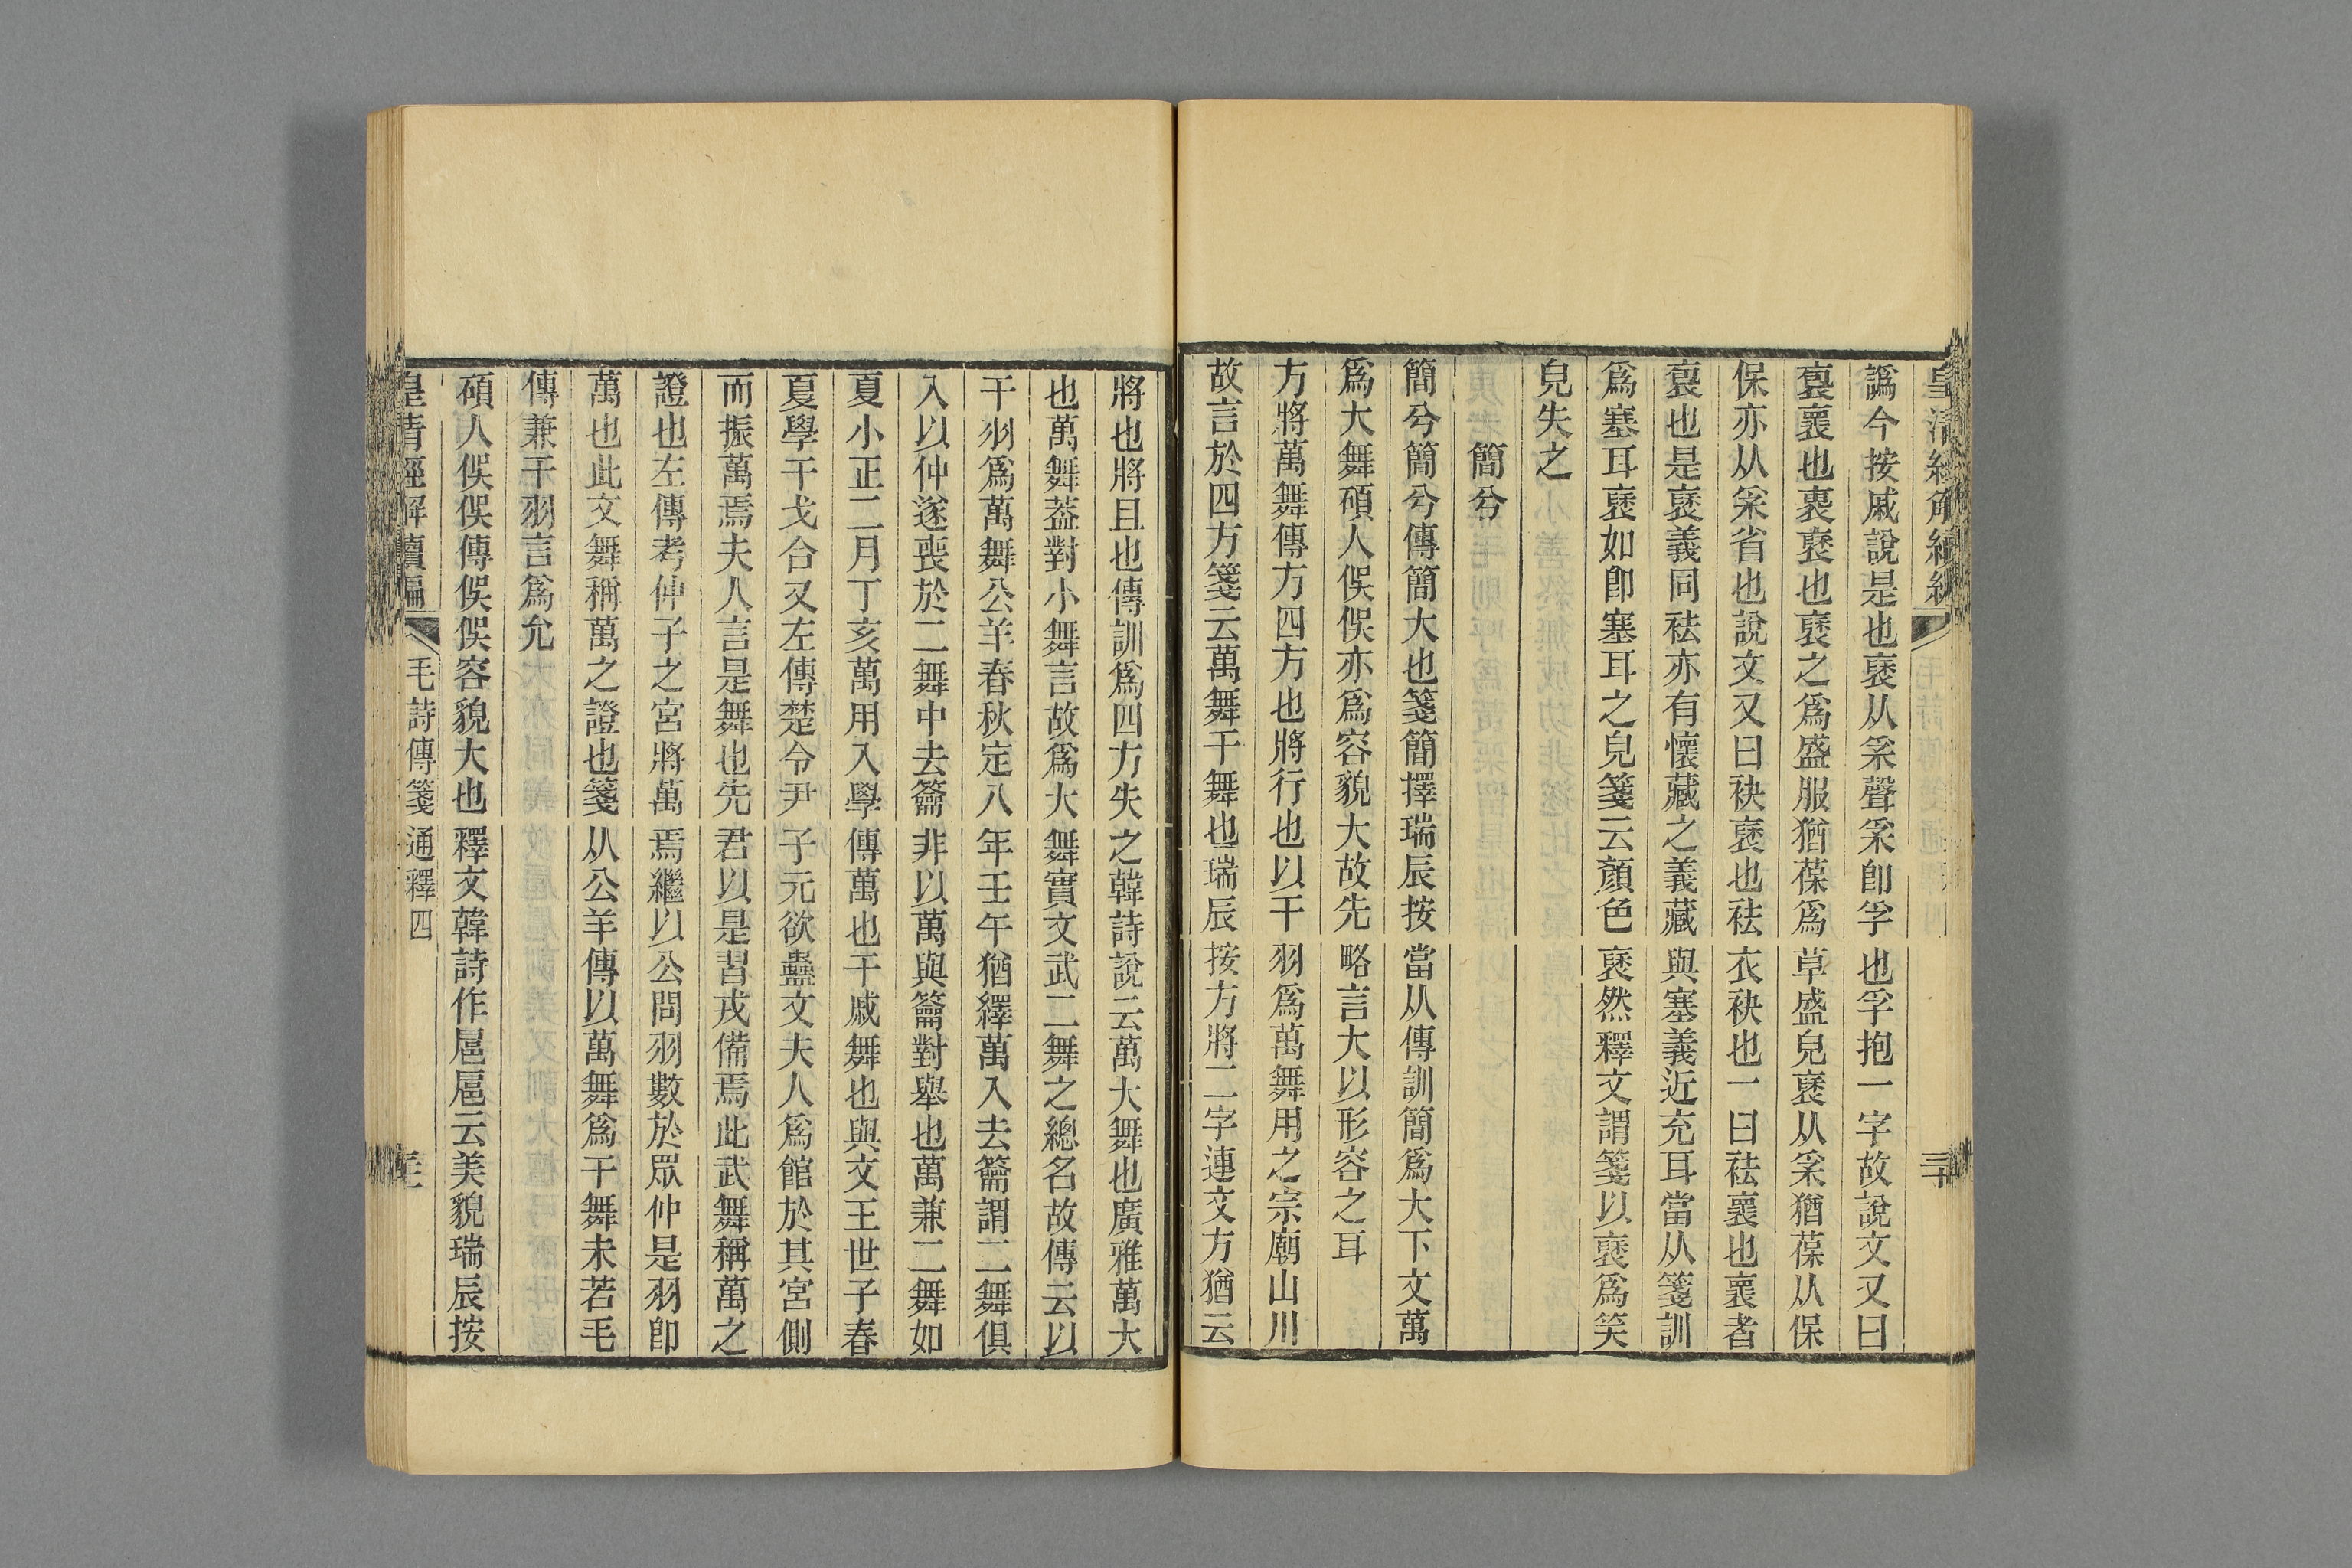 皇清經解續編
三十
譌今按戚說是也褎从𤓽聲𤓽卽孚也孚抱一字故說文又曰
褱褢也褢褎也褎之爲盛服猶葆爲草盛皃褎从𤓽猶葆从保
保亦从𤓽省也說文又曰袂褎也袪衣袂也一曰袪褱也褱者
褱也是褎義同袪亦有懷藏之義藏與塞義近充耳當从箋訓
爲塞耳褎如卽塞耳之皃箋云顏色褎然釋文謂箋以褎爲笑
皃失之
簡兮
簡兮簡兮傳簡大也箋簡擇瑞辰按當从傳訓簡爲大下文萬
爲大舞碩人俁俁亦爲容貌大故先略言大以形容之耳
方將萬舞傳方四方也將行也以干羽爲萬舞用之宗廟山川
故言於四方箋云萬舞干舞也瑞辰按方將二字連文方猶云
將也將且也傳訓爲四方失之韓詩說云萬大舞也廣雅萬大
也萬舞葢對小舞言故爲大舞實文武二舞之總名故傳云以
干羽爲萬舞公羊春秋定八年壬午猶繹萬入去籥謂二舞俱
入以仲遂喪於二舞中去籥非以萬與籥對舉也萬兼二舞如
夏小正二月丁亥萬用入學傳萬也干戚舞也與文王世子春
夏學干戈合又左傳楚令尹子元欲蠱文夫人爲館於其宮側
而振萬焉夫人言是舞也先君以是習戎備焉此武舞稱萬之
證也左傳考仲子之宮將萬焉繼以公問羽數於眾仲是羽卽
萬也此文舞稱萬之證也箋从公羊傳以萬舞爲干舞未若毛
傳兼干羽言爲允
碩人俁俁傳俁俁容貌大也釋文韓詩作扈扈云美貌瑞辰按
皇清經解續編
毛詩傳箋通釋四